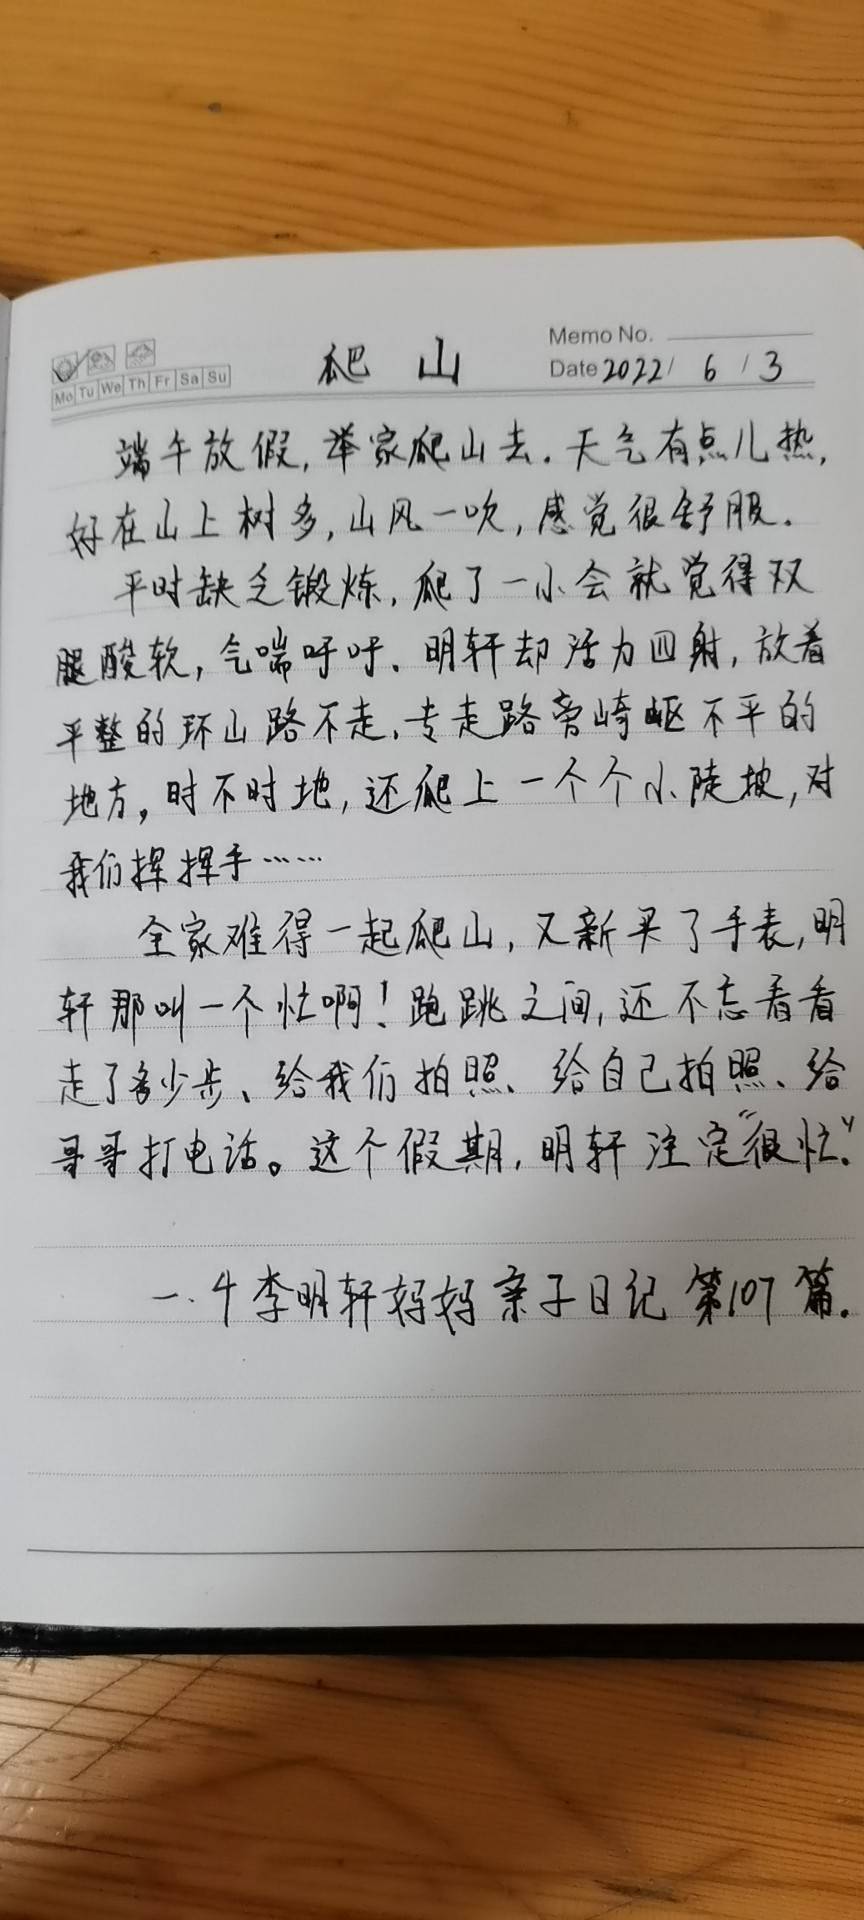 Memo No.
爬 山
Mo Tu We Th Fr Sa Su
Date 2022/ 6 / 3
端午放假,举家爬山去.天气有点儿热,
好在山上树多,山风一吹,感觉很舒服.
平时缺乏锻炼,爬了一小会就觉得双
腿酸软,气喘呼呼.明轩却活力四射,放着
平整的环山路不走,专走路旁崎岖不平的
地方,时不时地,还爬上一个个小陡坡,对
我们挥挥手……
全家难得一起爬山,又新买了手表,明
轩那叫一个忙啊!跑跳之间,还不忘看看
走了多少步、给我们拍照、给自己拍照、给
哥哥打电话。这个假期,明轩注定“很忙.”
一.4李明轩妈妈亲子日记第107篇.